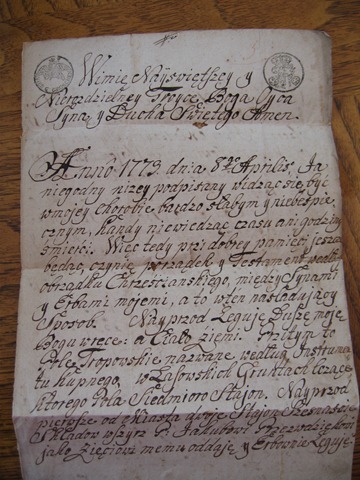 W imie Nayświętszey y
Nierozdzielney Troyce, Boga Oyca
Syna, y Ducha Swiętego Amen.
Anno 1773. dnia 8va Aprilis, Ja
niegodny nizey podpisany widząc się być
w mojey chorobie bardzo słabym y niebespie
cznym, kazdy niewiedząc czasu ani godziny
śmierci. Więc tedy przy dobrey pamięci jeszcze
będąc, czynię porządek y Testament według
obrządku Chrześcianskiego, między Synami
y Erbami mojemi, a to w ten nasladujący
Sposob. Nayprzod Leguję Duszę moję
Bogu w ręce: a Ciało ziemi. Przytym to
Pole Tropowskie nazwane według Instrumen
tu kupnego, w Łasowskich Gruntach leżące
ktorego Pola Siedmioro Stajon. Nayprzod
pierwsze od Miasta dwoje Stajon
Składow wszyrz P. Jakubowi
jako Zięciowi memu oddaję y Erbownie Leguję.